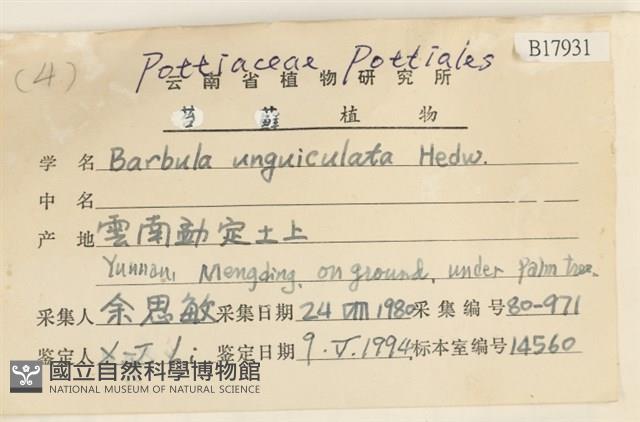 B17931
(4) Pottiaceae Pottiales
云南省植物研究所
苔藓植物
学名 Barbula unguiculata Hedw.
中名
产地 雲南勐定土上
Yunnan, Mengding, on ground, under Palm tree.
采集人 余思敏 采集日期 24 VIII 1980 采集编号 80-971
鉴定人 X-J. Li 鉴定日期 9.V.1994 标本室编号 14560
國立自然科學博物館
NATIONAL MUSEUM OF NATURAL SCIENCE